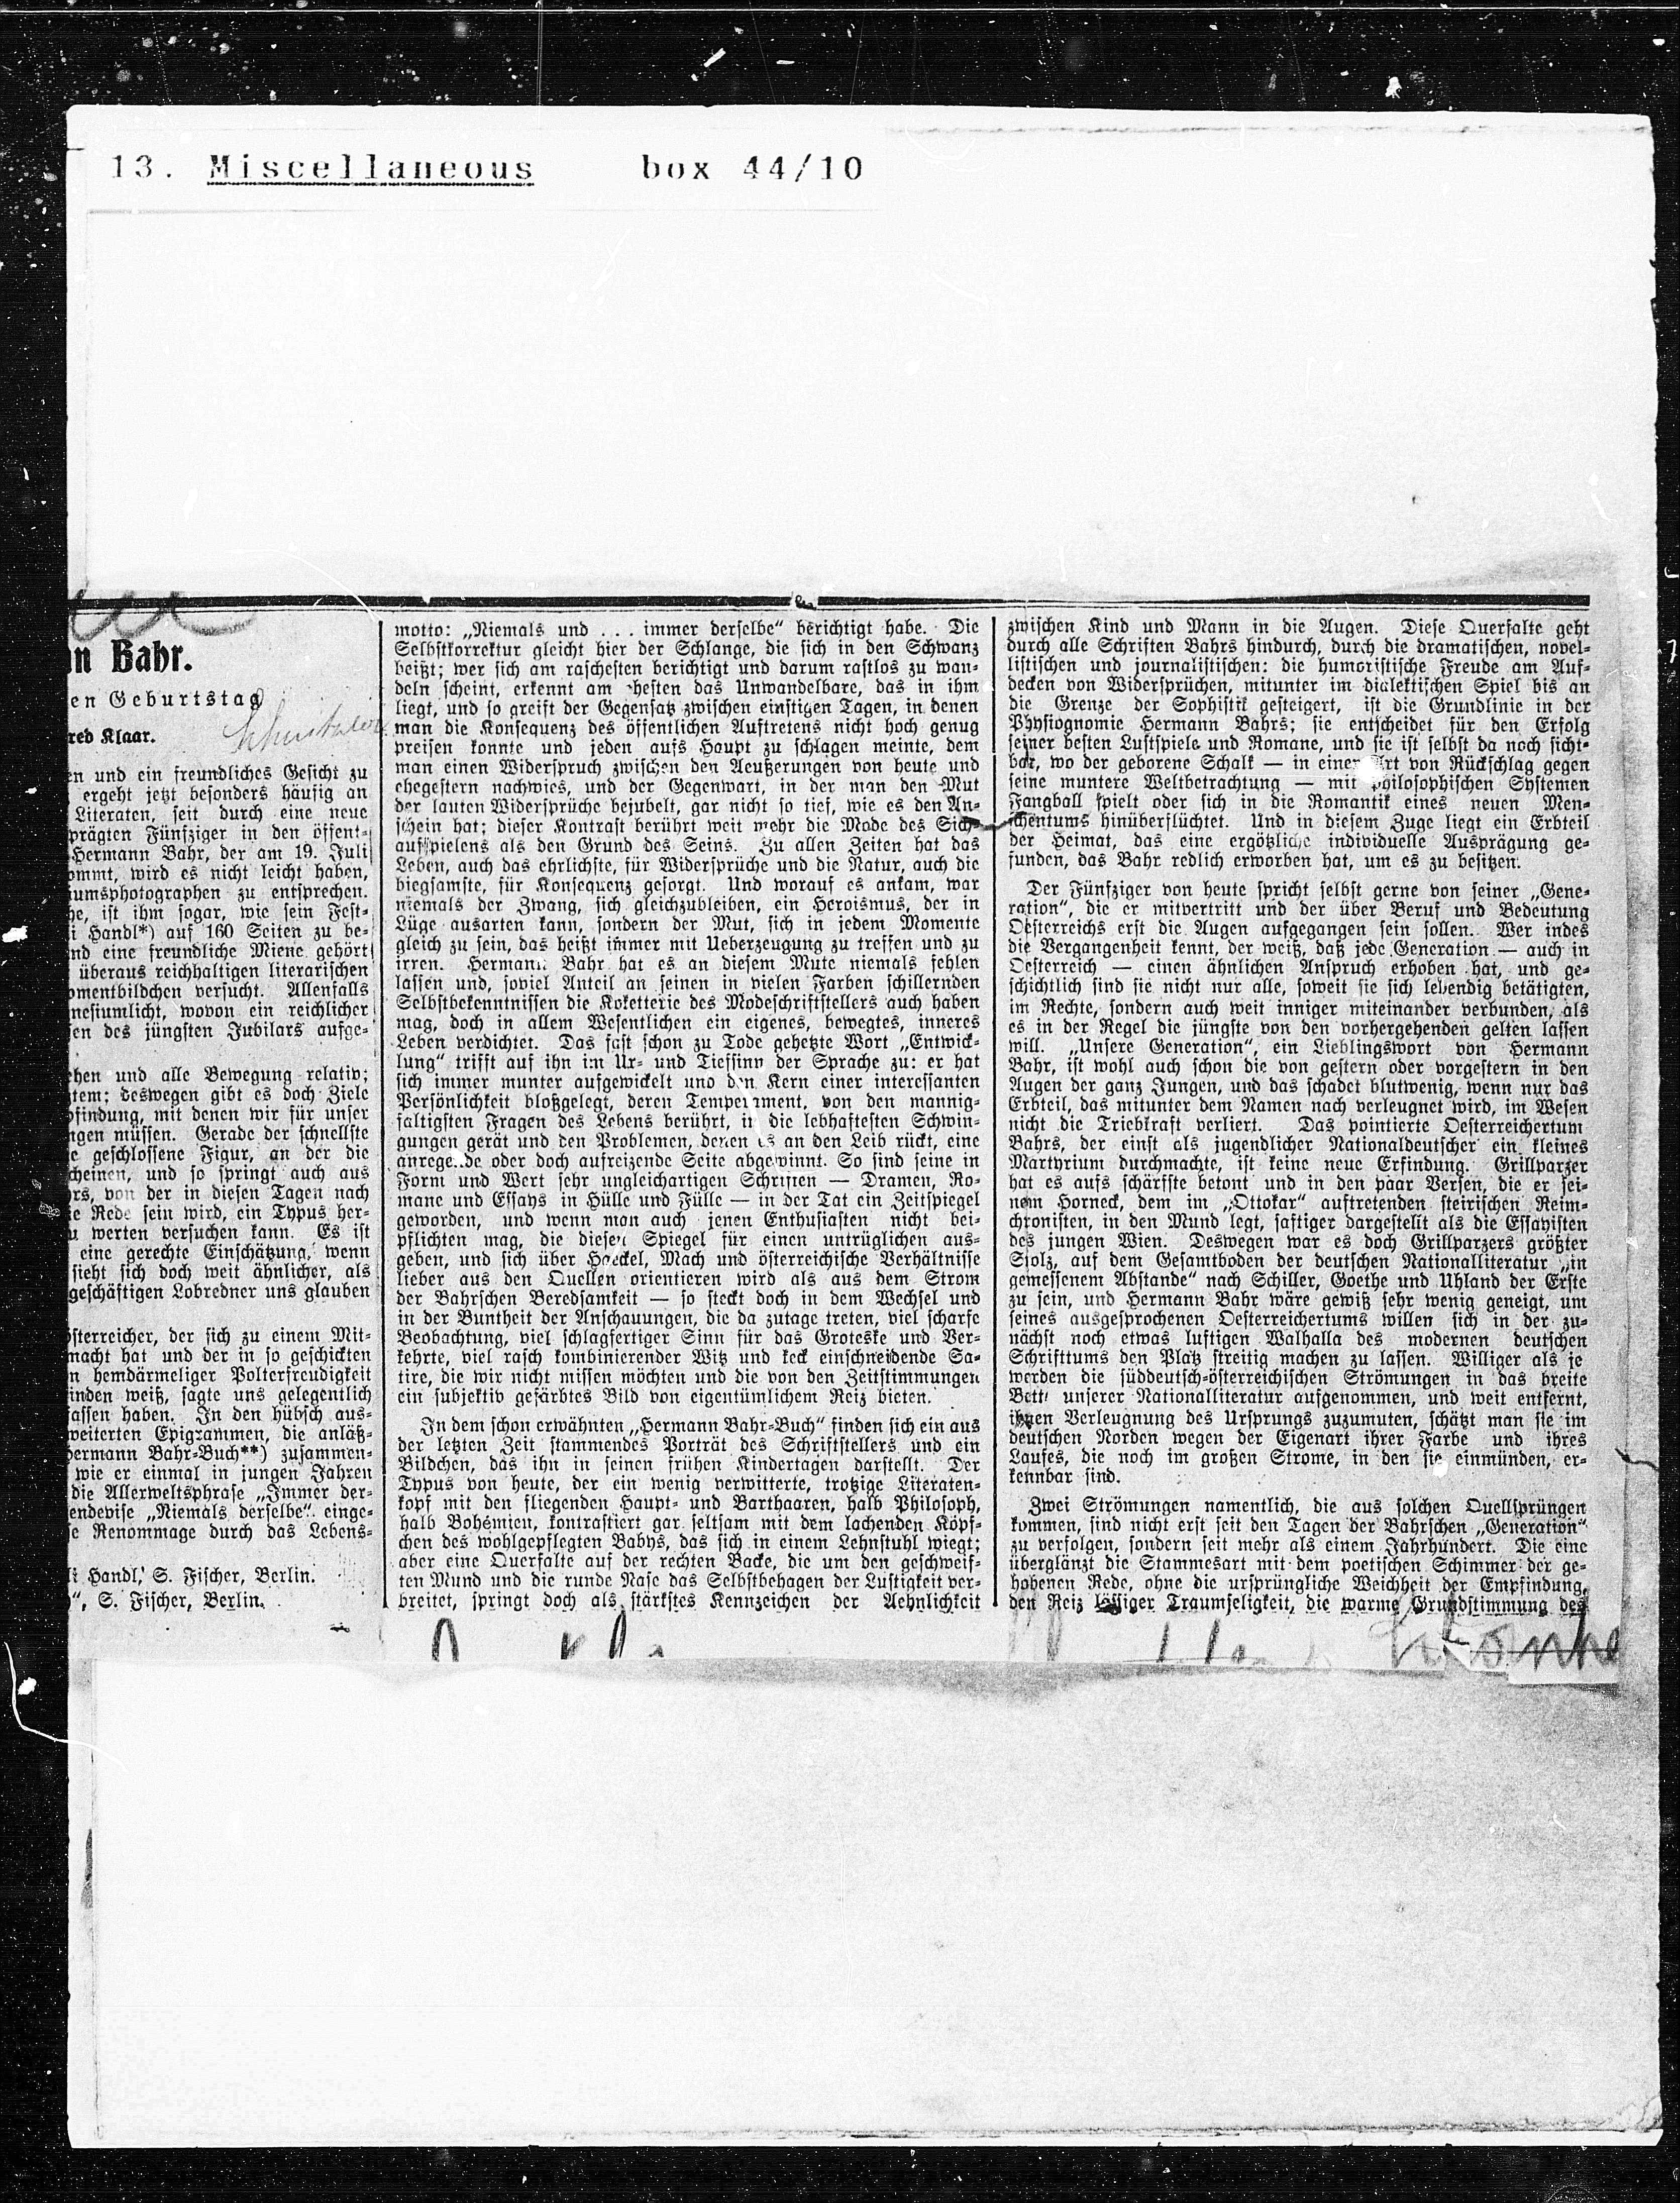 13. Miscellaneous box 44/10
n Bahr.
en Geburtstag
red Klaar.
en und ein freundliches Gesicht zu
ergeht jetzt besonders häufig an
Literaten, seit durch eine neue
prägten Fünfziger in den öffent-
Hermann Bahr, der am 19. Juli
ommt, wird es nicht leicht haben,
umsphotographen zu entsprechen.
he, ist ihm sogar, wie sein Fest-
i Handl*) auf 160 Seiten zu be-
nd eine freundliche Miene gehört
überaus reichhaltigen literarischen
omentbildchen versucht. Allenfalls
nesiumlicht, wovon ein reichlicher
en des jüngsten Jubilars aufge-
ehen und alle Bewegung relativ;
tem; deswegen gibt es doch Ziele
pfindung, mit denen wir für unser
ngen müssen. Gerade der schnellste
e geschlossene Figur, an der die
cheinen, und so springt auch aus
rs, von der in diesen Tagen nach
ie Rede sein wird, ein Typus her-
u werten versuchen kann. Es ist
eine gerechte Einschätzung, wenn
sieht sich doch weit ähnlicher, als
geschäftigen Lobredner uns glauben
österreicher, der sich zu einem Mit-
macht hat und der in so geschickten
n hemdärmeliger Polterfreudigkeit
inden weiß, sagte uns gelegentlich
assen haben. In den hübsch aus-
weiterten Epigrammen, die anläß-
ermann Bahr-Buch**) zusammen-
wie er einmal in jungen Jahren
die Allerweltsphrase „Immer der-
endevise „Niemals derselbe“ einge-
e Renommage durch das Lebens-
i Handl, S. Fischer, Berlin.
“, S. Fischer, Berlin.
motto: „Niemals und . . . immer derselbe“ berichtigt habe. Die
Selbstkorrektur gleicht hier der Schlange, die sich in den Schwanz
beißt; wer sich am raschesten berichtigt und darum rastlos zu wan-
deln scheint, erkennt am ehesten das Unwandelbare, das in ihm
liegt, und so greift der Gegensatz zwischen einstigen Tagen, in denen
man die Konsequenz des öffentlichen Auftretens nicht hoch genug
preisen konnte und jeden aufs Haupt zu schlagen meinte, dem
man einen Widerspruch zwischen den Aeußerungen von heute und
ehegestern nachwies, und der Gegenwart, in der man den Mut
der lauten Widersprüche bejubelt, gar nicht so tief, wie es den An-
schein hat; dieser Kontrast berührt weit mehr die Mode des Sich-
aufspielens als den Grund des Seins. Zu allen Zeiten hat das
Leben, auch das ehrlichste, für Widersprüche und die Natur, auch die
biegsamste, für Konsequenz gesorgt. Und worauf es ankam, war
niemals der Zwang, sich gleichzubleiben, ein Heroismus, der in
Lüge ausarten kann, sondern der Mut, sich in jedem Momente
gleich zu sein, das heißt immer mit Ueberzeugung zu treffen und zu
irren. Hermann Bahr hat es an diesem Mute niemals fehlen
lassen und, soviel Anteil an seinen in vielen Farben schillernden
Selbstbekenntnissen die Koketterie des Modeschriftstellers auch haben
mag, doch in allem Wesentlichen ein eigenes, bewegtes, inneres
Leben verdichtet. Das fast schon zu Tode gehetzte Wort „Entwick-
lung“ trifft auf ihn im Ur- und Tiefsinn der Sprache zu: er hat
sich immer munter aufgewickelt und den Kern einer interessanten
Persönlichkeit bloßgelegt, deren Temperament, von den mannig-
faltigsten Fragen des Lebens berührt, in die lebhaftesten Schwin-
gungen gerät und den Problemen, denen es an den Leib rückt, eine
anregende oder doch aufreizende Seite abgewinnt. So sind seine in
Form und Wert sehr ungleichartigen Schriften — Dramen, Ro-
mane und Essays in Hülle und Fülle — in der Tat ein Zeitspiegel
geworden, und wenn man auch jenen Enthusiasten nicht bei-
pflichten mag, die diesen Spiegel für einen untrüglichen aus-
geben, und sich über Haeckel, Mach und österreichische Verhältnisse
lieber aus den Quellen orientieren wird als aus dem Strom
der Bahrschen Beredsamkeit — so steckt doch in dem Wechsel und
in der Buntheit der Anschauungen, die da zutage treten, viel scharfe
Beobachtung, viel schlagfertiger Sinn für das Groteske und Ver-
kehrte, viel rasch kombinierender Witz und keck einschneidende Sa-
tire, die wir nicht missen möchten und die von den Zeitstimmungen
ein subjektiv gefärbtes Bild von eigentümlichem Reiz bieten.
In dem schon erwähnten „Hermann Bahr-Buch“ finden sich ein aus
der letzten Zeit stammendes Porträt des Schriftstellers und ein
Bildchen, das ihn in seinen frühen Kindertagen darstellt. Der
Typus von heute, der ein wenig verwitterte, trotzige Literaten-
kopf mit den fliegenden Haupt- und Barthaaren, halb Philosoph,
halb Bohémien, kontrastiert gar seltsam mit dem lachenden Köpf-
chen des wohlgepflegten Babys, das sich in einem Lehnstuhl wiegt;
aber eine Querfalte auf der rechten Backe, die um den geschweif-
ten Mund und die runde Nase das Selbstbehagen der Lustigkeit ver-
breitet, springt doch als stärkstes Kennzeichen der Aehnlichkeit
zwischen Kind und Mann in die Augen. Diese Querfalte geht
durch alle Schriften Bahrs hindurch, durch die dramatischen, novel-
listischen und journalistischen: die humoristische Freude am Auf-
decken von Widersprüchen, mitunter im dialektischen Spiel bis an
die Grenze der Sophistik gesteigert, ist die Grundlinie in der
Physiognomie Hermann Bahrs; sie entscheidet für den Erfolg
seiner besten Lustspiele und Romane, und sie ist selbst da noch sicht-
bar, wo der geborene Schalk — in einer Art von Rückschlag gegen
seine muntere Weltbetrachtung — mit philosophischen Systemen
Fangball spielt oder sich in die Romantik eines neuen Men-
schentums hinüberflüchtet. Und in diesem Zuge liegt ein Erbteil
der Heimat, das eine ergötzliche individuelle Ausprägung ge-
funden, das Bahr redlich erworben hat, um es zu besitzen.
Der Fünfziger von heute spricht selbst gerne von seiner „Gene-
ration“, die er mitvertritt und der über Beruf und Bedeutung
Oesterreichs erst die Augen aufgegangen sein sollen. Wer indes
die Vergangenheit kennt, der weiß, daß jede Generation — auch in
Oesterreich — einen ähnlichen Anspruch erhoben hat, und ge-
schichtlich sind sie nicht nur alle, soweit sie sich lebendig betätigten,
im Rechte, sondern auch weit inniger miteinander verbunden, als
es in der Regel die jüngste von den vorhergehenden gelten lassen
will. „Unsere Generation“, ein Lieblingswort von Hermann
Bahr, ist wohl auch schon die von gestern oder vorgestern in den
Augen der ganz Jungen, und das schadet blutwenig, wenn nur das
Erbteil, das mitunter dem Namen nach verleugnet wird, im Wesen
nicht die Triebkraft verliert. Das pointierte Oesterreichertum
Bahrs, der einst als jugendlicher Nationaldeutscher ein kleines
Martyrium durchmachte, ist keine neue Erfindung. Grillparzer
hat es aufs schärfste betont und in den paar Versen, die er sei-
nem Horneck, dem im „Ottokar“ auftretenden steirischen Reim-
chronisten, in den Mund legt, saftiger dargestellt als die Essayisten
des jungen Wien. Deswegen war es doch Grillparzers größter
Stolz, auf dem Gesamtboden der deutschen Nationalliteratur „in
gemessenem Abstande“ nach Schiller, Goethe und Uhland der Erste
zu sein, und Hermann Bahr wäre gewiß sehr wenig geneigt, um
seines ausgesprochenen Oesterreichertums willen sich in der zu-
nächst noch etwas luftigen Walhalla des modernen deutschen
Schrifttums den Platz streitig machen zu lassen. Williger als je
werden die süddeutsch-österreichischen Strömungen in das breite
Bett unserer Nationalliteratur aufgenommen, und weit entfernt,
ihnen Verleugnung des Ursprungs zuzumuten, schätzt man sie im
deutschen Norden wegen der Eigenart ihrer Farbe und ihres
Laufes, die noch im großen Strome, in den sie einmünden, er-
kennbar sind.
Zwei Strömungen namentlich, die aus solchen Quellsprüngen
kommen, sind nicht erst seit den Tagen der Bahrschen „Generation“
zu verfolgen, sondern seit mehr als einem Jahrhundert. Die eine
überglänzt die Stammesart mit dem poetischen Schimmer der ge-
hobenen Rede, ohne die ursprüngliche Weichheit der Empfindung,
den Reiz lässiger Traumseligkeit, die warme Grundstimmung des